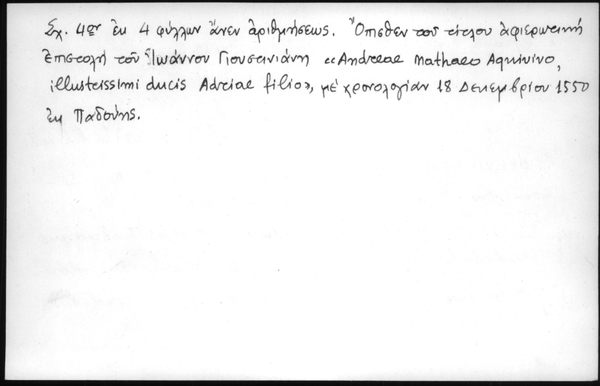 Σχ. 4ον ἐκ 4 φύλλων ἄνευ ἀριθμήσεως. Ὄπισθεν τοῦ τίτλου ἀφιερωτική
ἐπιστολή τοῦ Ἰωάννου Γιουστινιάνη «Andreae Mathaeo Aquivivo,
illustrissimi ducis Adriae filio», μέ χρονολογίαν 18 Δεκεμβρίου 1550
ἐκ Παδούης.